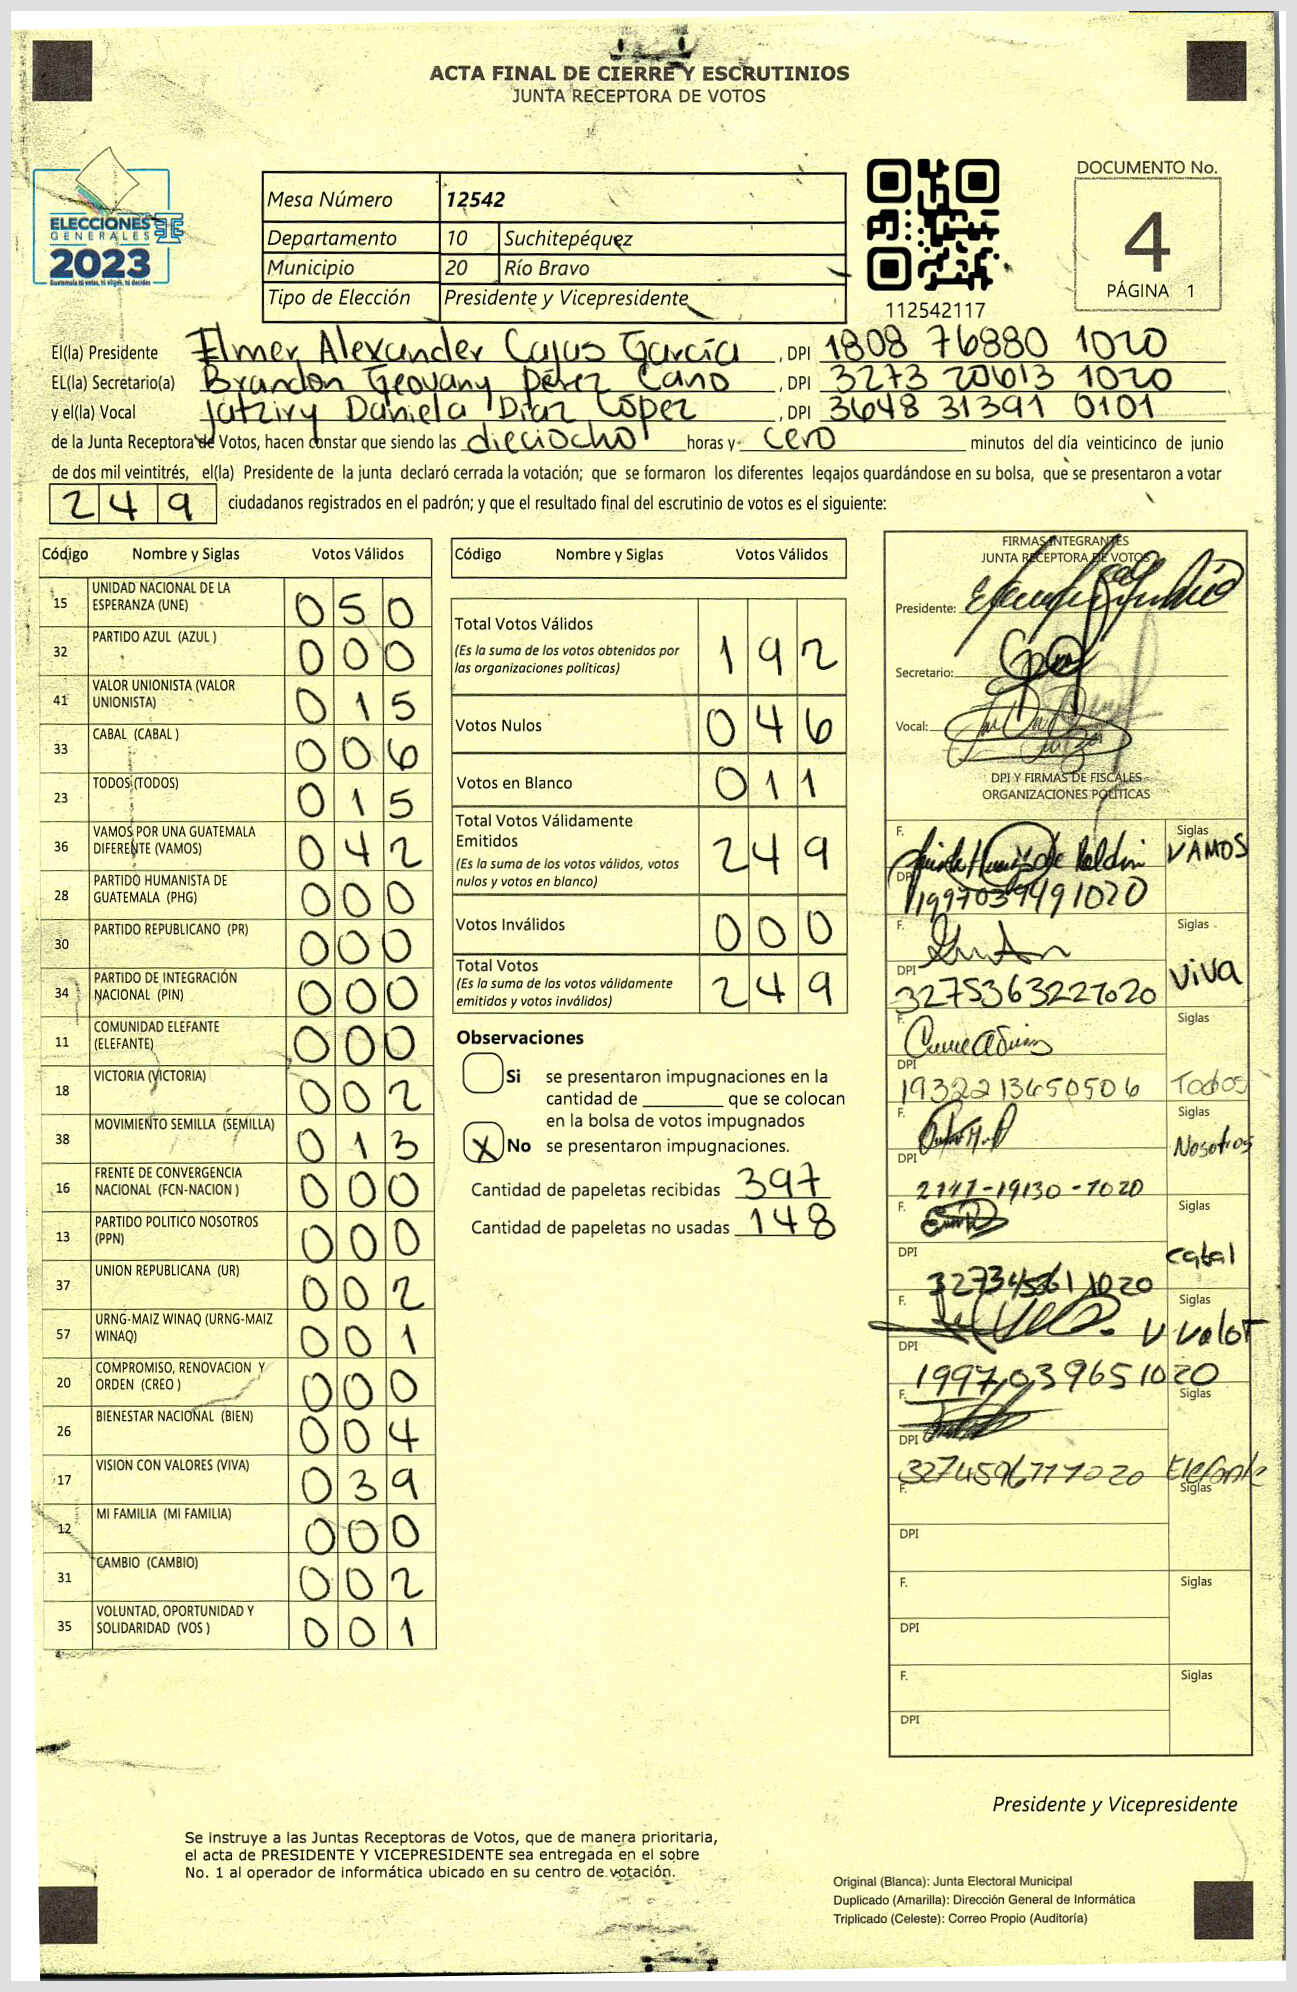 ACTA FINAL DE CIERRE Y ESCRUTINIOS
JUNTA RECEPTORA DE VOTOS
DOCUMENTO No.
4
PÁGINA 1
ELECCIONES
GENERALES
2023
Guatemala tú votas, tú eliges, tú decides
Mesa Número 12542
Departamento 10 Suchitepéquez
Municipio 20 Río Bravo
Tipo de Elección Presidente y Vicepresidente
112542117
El(la) Presidente Elmer Alexander Cajas García , DPI 1808 76880 1020
EL(la) Secretario(a) Brandon Geovany Pérez Cano , DPI 3273 20613 1020
y el(la) Vocal Jatziry Daniela Díaz López , DPI 3648 31391 0101
de la Junta Receptora de Votos, hacen constar que siendo las dieciocho horas y cero minutos del día veinticinco de junio
de dos mil veintitrés, el(la) Presidente de la junta declaró cerrada la votación; que se formaron los diferentes legajos guardándose en su bolsa, que se presentaron a votar
249 ciudadanos registrados en el padrón; y que el resultado final del escrutinio de votos es el siguiente:
Código Nombre y Siglas Votos Válidos
15 UNIDAD NACIONAL DE LA
ESPERANZA (UNE) 050
32 PARTIDO AZUL (AZUL ) 000
41 VALOR UNIONISTA (VALOR
UNIONISTA) 015
33 CABAL (CABAL ) 006
23 TODOS (TODOS) 015
36 VAMOS POR UNA GUATEMALA
DIFERENTE (VAMOS) 042
28 PARTIDO HUMANISTA DE
GUATEMALA (PHG) 000
30 PARTIDO REPUBLICANO (PR) 000
34 PARTIDO DE INTEGRACIÓN
NACIONAL (PIN) 000
11 COMUNIDAD ELEFANTE
(ELEFANTE) 000
18 VICTORIA (VICTORIA) 002
38 MOVIMIENTO SEMILLA (SEMILLA) 013
16 FRENTE DE CONVERGENCIA
NACIONAL (FCN-NACION ) 000
13 PARTIDO POLITICO NOSOTROS
(PPN) 000
37 UNION REPUBLICANA (UR) 002
57 URNG-MAIZ WINAQ (URNG-MAIZ
WINAQ) 001
20 COMPROMISO, RENOVACION Y
ORDEN (CREO ) 000
26 BIENESTAR NACIONAL (BIEN) 004
17 VISION CON VALORES (VIVA) 039
12 MI FAMILIA (MI FAMILIA) 000
31 CAMBIO (CAMBIO) 002
35 VOLUNTAD, OPORTUNIDAD Y
SOLIDARIDAD (VOS ) 001
Código Nombre y Siglas Votos Válidos
Total Votos Válidos 192
(Es la suma de los votos obtenidos por
las organizaciones políticas)
Votos Nulos 046
Votos en Blanco 011
Total Votos Válidamente
Emitidos 249
(Es la suma de los votos válidos, votos
nulos y votos en blanco)
Votos Inválidos 000
Total Votos 249
(Es la suma de los votos válidamente
emitidos y votos inválidos)
Observaciones
Si se presentaron impugnaciones en la
cantidad de ________ que se colocan
en la bolsa de votos impugnados
X No se presentaron impugnaciones.
Cantidad de papeletas recibidas 397
Cantidad de papeletas no usadas 148
FIRMAS INTEGRANTES
JUNTA RECEPTORA DE VOTOS
Presidente:
Secretario:
Vocal:
DPI Y FIRMAS DE FISCALES
ORGANIZACIONES POLÍTICAS
F. Siglas
VAMOS
DPI 1997039491020
F. Siglas
viva
DPI 3275363227020
F. Siglas
DPI
1932213650506 Todos
F. Siglas
Nosotros
DPI
2141-19130-1020
F. Siglas
DPI cabal
327345611020
F. Siglas
V Valor
DPI
1997039651020
F. Siglas
DPI
3274596771020 Elefante
F. Siglas
DPI
F. Siglas
DPI
F. Siglas
DPI
Presidente y Vicepresidente
Se instruye a las Juntas Receptoras de Votos, que de manera prioritaria,
el acta de PRESIDENTE Y VICEPRESIDENTE sea entregada en el sobre
No. 1 al operador de informática ubicado en su centro de votación.
Original (Blanca): Junta Electoral Municipal
Duplicado (Amarilla): Dirección General de Informática
Triplicado (Celeste): Correo Propio (Auditoría)